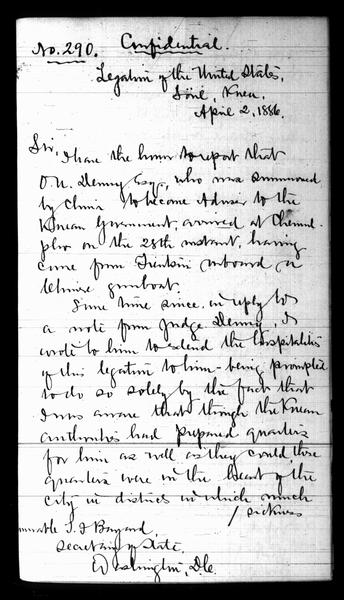 No. 290. Confidential.
Legation of the United States,
Söul, Korea.
April 2, 1886.
Sir,
I have the honor to report that
O. N. Denny Esq., who was summoned
by China to become Adviser to the
Korean Government, arrived at Chemul-
pho on the 28th instant, having
come from Tientsin onboard a
Chinese gunboat.
Some time since, in reply to
a note from Judge Denny, I
wrote to him to extend the hospitalities
of this legation to him - being prompted
to do so solely by the fact that
I was aware that though the Korean
authorities had prepared quarters
for him as well as they could, those
quarters were in the heart of the
city in districts in which much
/ sickness
Honorable T. F. Bayard,
Secretary of State.
Washington, D.C.